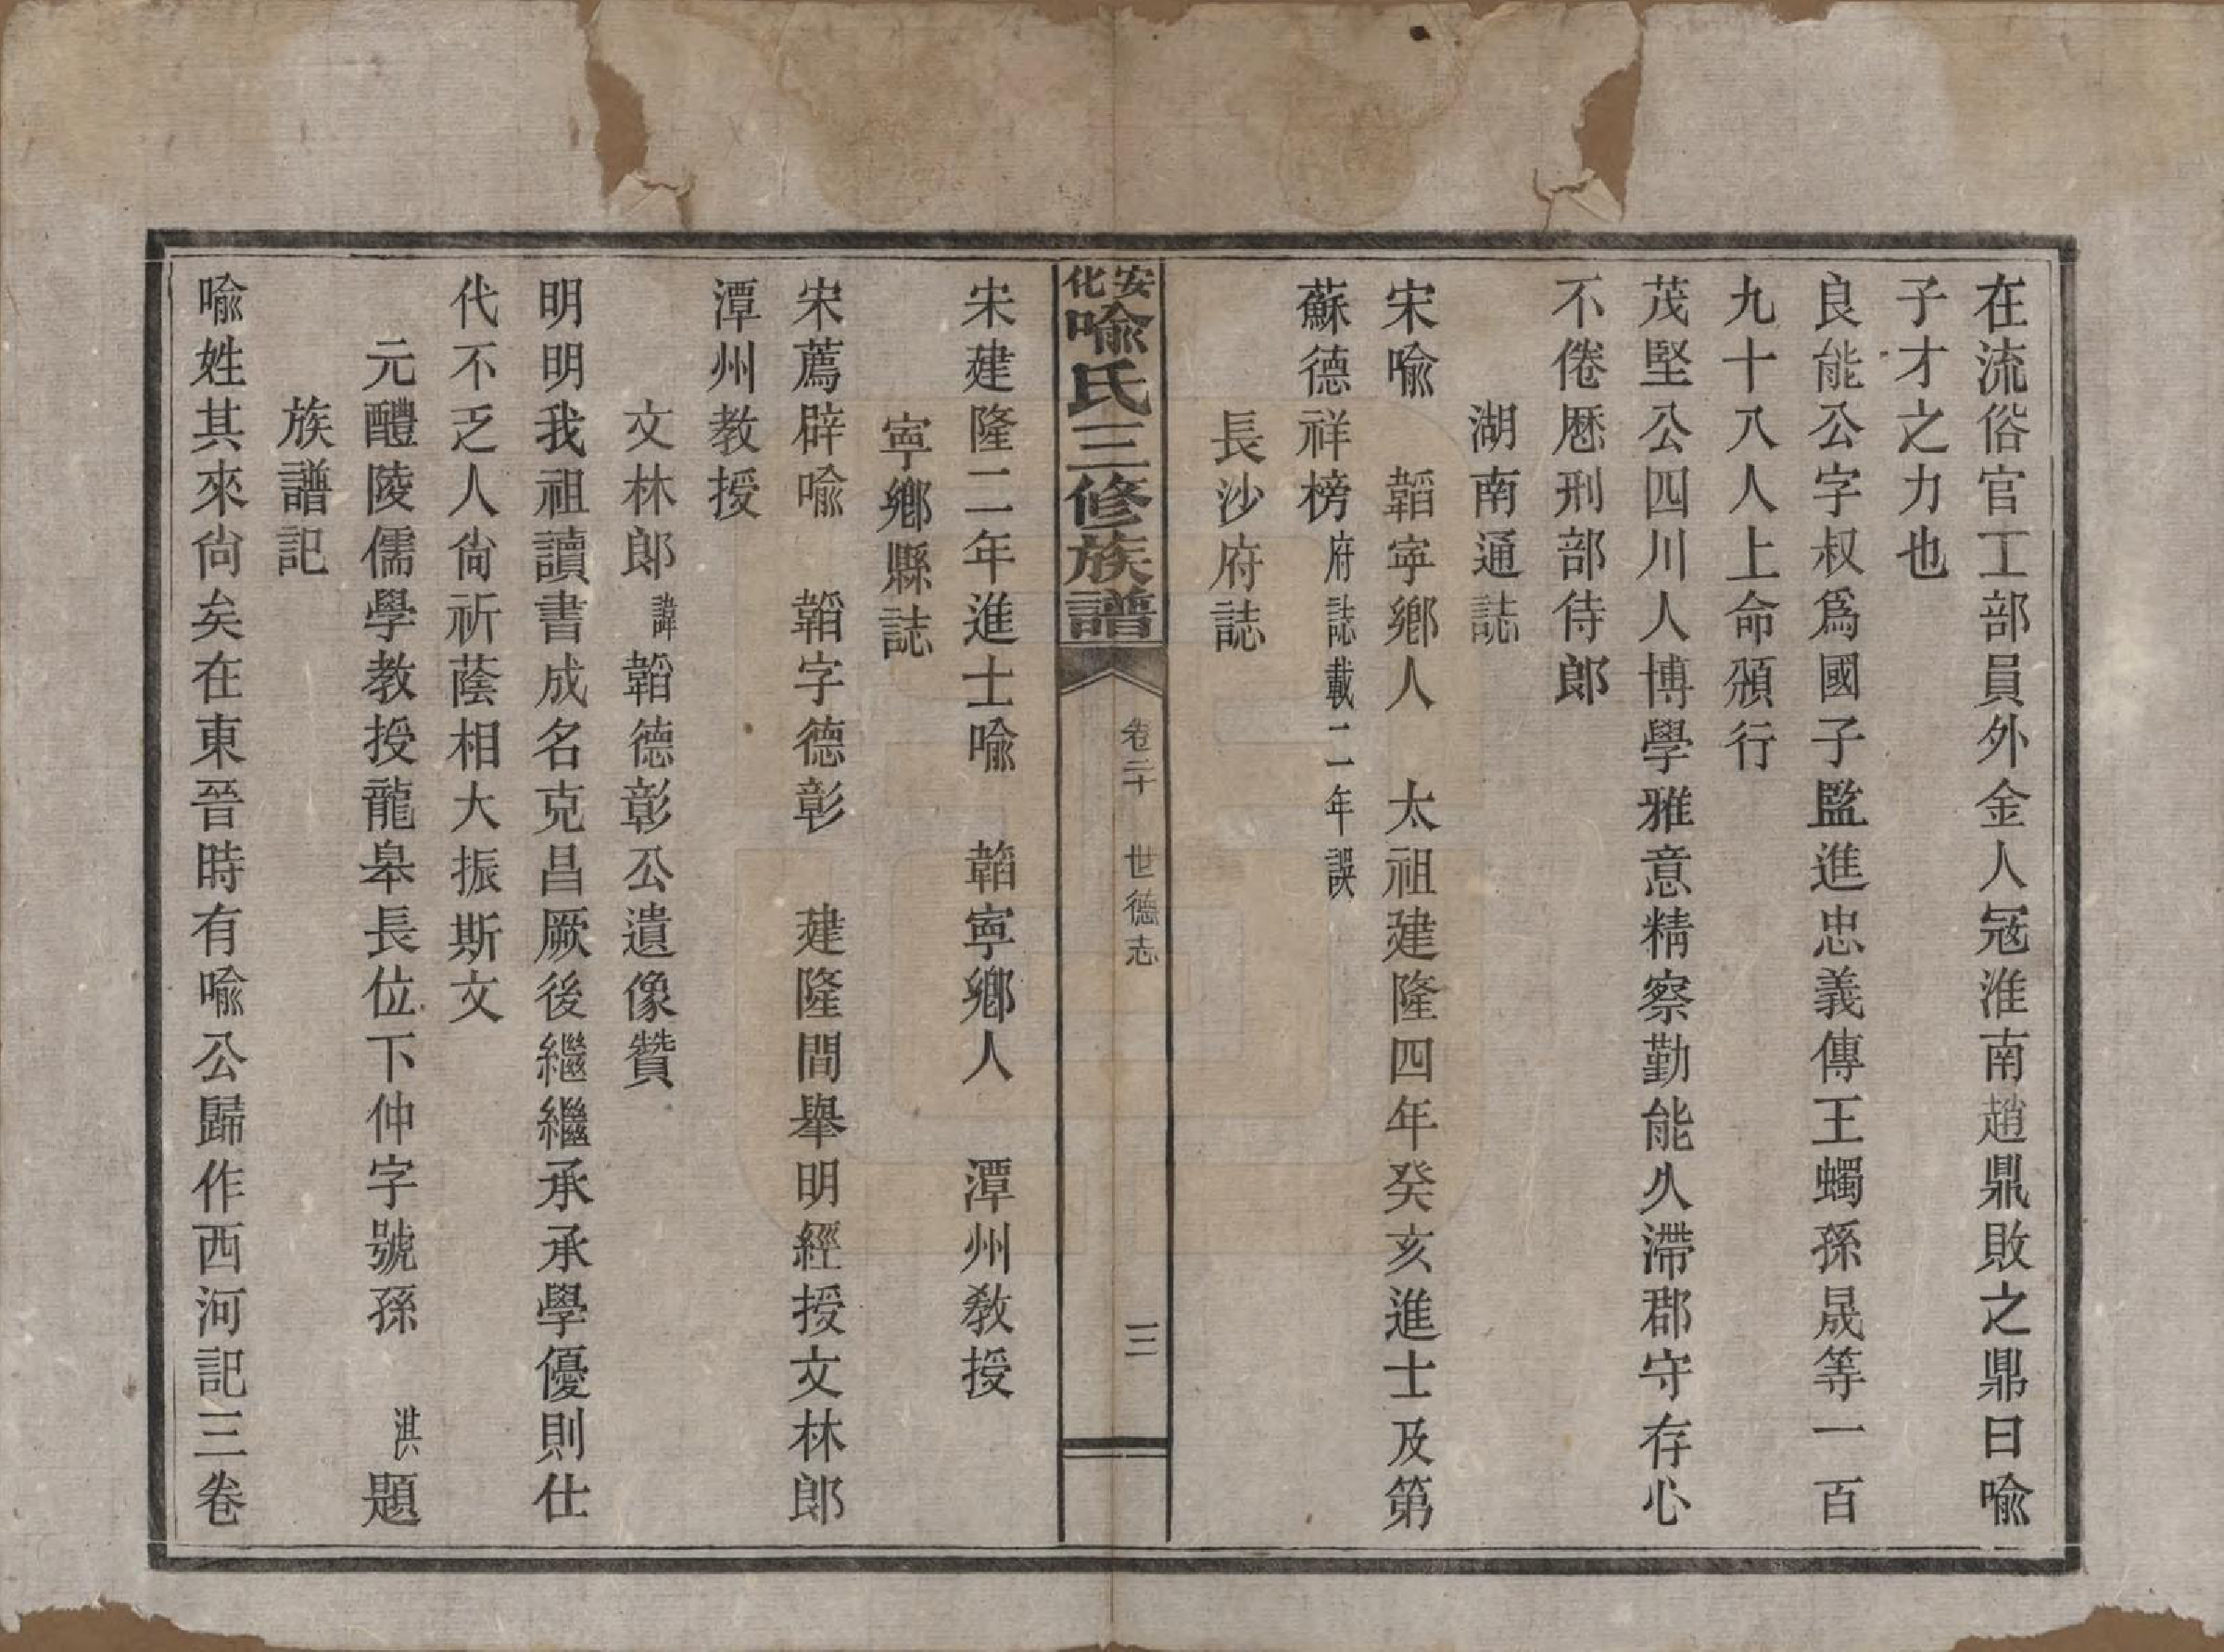 在流俗官工部員外金人冦淮南趙鼎敗之鼎曰喻
子才之力也
良能公字叔爲國子監進忠義傳王蠋孫晟等一百
九十八人上命頒行
茂堅公四川人博學雅意精察勤能久滯郡守存心
不倦歷刑部侍郎
湖南通誌
宋喻　韜寧鄉人　太祖建隆四年癸亥進士及第
蘇德祥榜府誌載二年誤
長沙府誌
安化喻氏三修族譜　卷二十　世德志　三
宋建隆二年進士喻　韜寧鄉人　潭州教授
寧鄉縣誌
宋薦辟喻　韜字德彰　建隆間舉明經授文林郎
潭州教授
文林郎諱韜德彰公遺像贊
明明我祖讀書成名克昌厥後繼繼承承學優則仕
代不乏人尙祈蔭相大振斯文
元醴陵儒學教授龍皋長位下仲字號孫　淇題
族譜記
喻姓其來尙矣在東晉時有喻公歸作西河記三卷